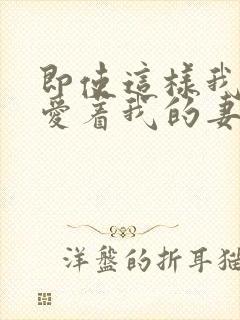 即使這樣我
愛著我的妻
洋盤的折耳猫